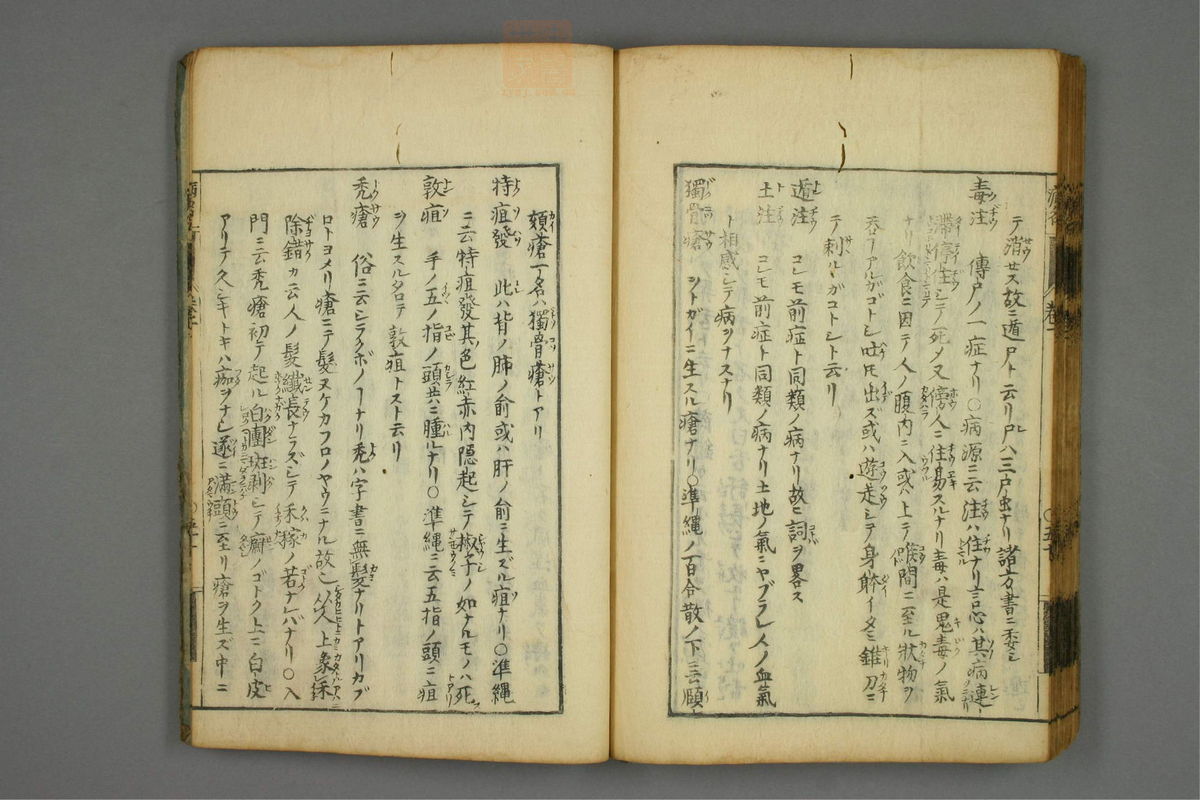 テ消セス故ニ遁尸ト云リ尸ハ三尸虫ナリ諸方書ニ委シ
毒注 傳尸ノ一症ナリ○病源ニ云注ハ住ナリ言心ハ其病連
滯停住シテ死メ又傍人ニ注易スルナリ毒ハ是鬼毒ノ氣
ナリ飲食ニ因テ人ノ腹内ニ入或ハ上テ喉間ニ至ル狀物ヲ
吞アルガゴトシ吐モ出ズ或ハ遊走シテ身躰イタミ錐刀ニ
テ刺ルガコトシト云リ
遁注 コレモ前症ト同類ノ病ナリ故ニ詞ヲ畧ス
土注 コレモ前症ト同類ノ病ナリ土地ノ氣ニヤブラレ人ノ血氣
ト相感シテ病ヲナスナリ
獨骨瘡 ヲトガイニ生スル瘡ナリ○準縄ノ百合散ノ下ニ云頤
頦瘡一名ハ獨骨瘡トアリ
特疽發 此ハ背ノ肺ノ俞或ハ肝ノ俞ニ生ズル疽ナリ○準縄
ニ云特疽發其色紅赤内隠起シテ椒子ノ如ナルモノハ死
敦疽 手ノ五ノ指ノ頭共ニ腫ルナリ○準縄ニ云五指ノ頭ニ疽
ヲ生スル名テ敦疽トスト云リ
禿瘡 俗ニ云シラクボノナリ禿ハ字書ニ無髮ナリトアリカブ
ロトヨメリ瘡ニテ髮ヌケカフロノヤウニナル故也
除錯カ云人ノ髮纖長ナラズシテ禾稼ノ若ナレバナリ○入
門ニ云禿瘡初テ起ル白團斑剥シテ癬ノゴトク上ニ白皮
アリテ久シキトキハ痂ヲナシ遂ニ滿頭ニ至リ瘡ヲ生ズ中ニ